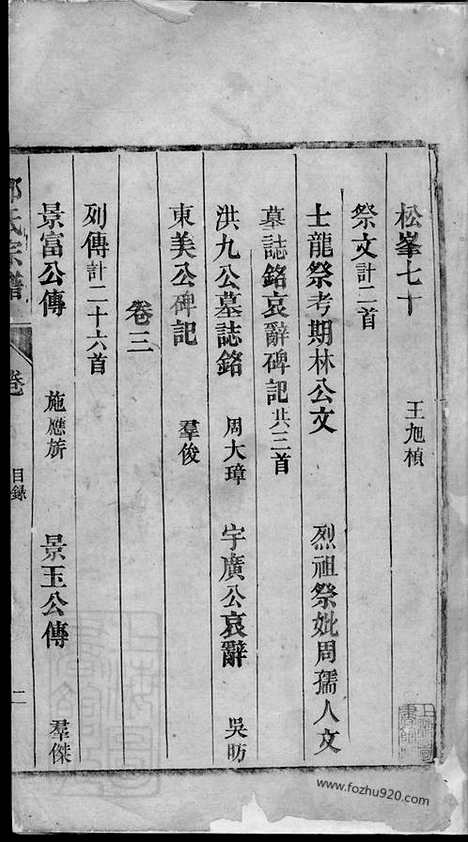 松峯七十 王旭楨
祭文計二首
士龍祭考期林公文 烈祖祭妣周孺人文
墓誌銘哀辭碑記共三首
洪九公墓誌銘 周大璋 宇廣公哀辭 吳昉
東美公碑記 羣俊
卷三
列傳計二十六首
景富公傳 施應旂 景玉公傳 羣傑
氏宗譜 卷 目錄 二
www.fozhu920.com